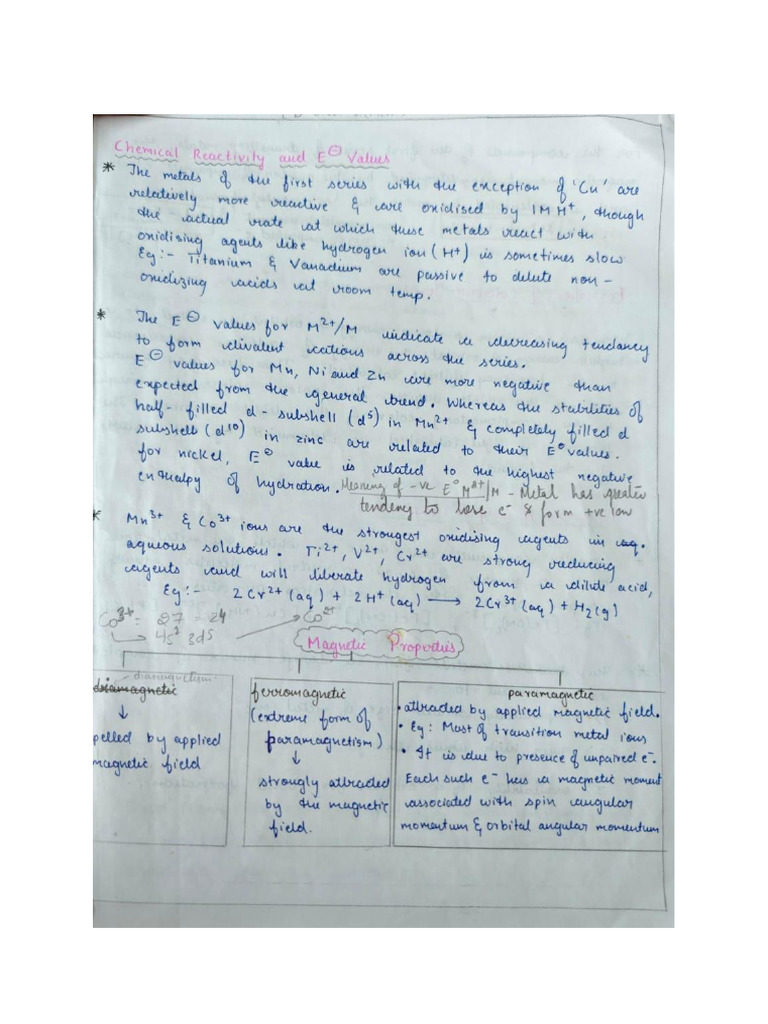 Chemical Reactivity and E⊖ Values
* The metals of the first series with the exception of 'Cu' are
relatively more reactive & are oxidised by 1M H⁺, though
the actual rate at which these metals react with
oxidising agents like hydrogen ion (H⁺) is sometimes slow
Eg:- Titanium & Vanadium are passive to dilute non-
oxidizing acids at room temp.
* The E⊖ values for M²⁺/M indicate a decreasing tendancy
to form divalent cations across the series.
E⊖ values for Mn, Ni and Zn are more negative than
expected from the general trend. Whereas the stabilities of
half-filled d-subshell (d⁵) in Mn²⁺ & completely filled d
subshell (d¹⁰) in zinc are related to their E° values.
for nickel, E° value is related to the highest negative
enthalpy of hydration. Meaning of -ve E° M²⁺/M - Metal has greater
tendeny to lose e⁻ & form +ve low
* Mn³⁺ & Co³⁺ ions are the strongest oxidising agents in aq.
aqueous solutions. Ti²⁺, V²⁺, Cr²⁺ are strong reducing
agents and will liberate hydrogen from a dilute acid,
Eg:- 2Cr²⁺(aq) + 2H⁺(aq) → 2Cr³⁺(aq) + H₂(g)
Co³⁺ = 27 = 24 Co²⁺
4s² 3d⁵
Magnetic Properties
diamagnetism
diamagnetic
↓
pelled by applied
magnetic field
ferromagnetic
(extreme form of
paramagnetism)
↓
strongly attracted
by the magnetic
field.
paramagnetic
• attracted by applied magnetic field.
• Eg: Most of transition metal ions
• It is due to presence of unpaired e⁻.
Each such e⁻ has a magnetic moment
associated with spin angular
momentum & orbital angular momentum